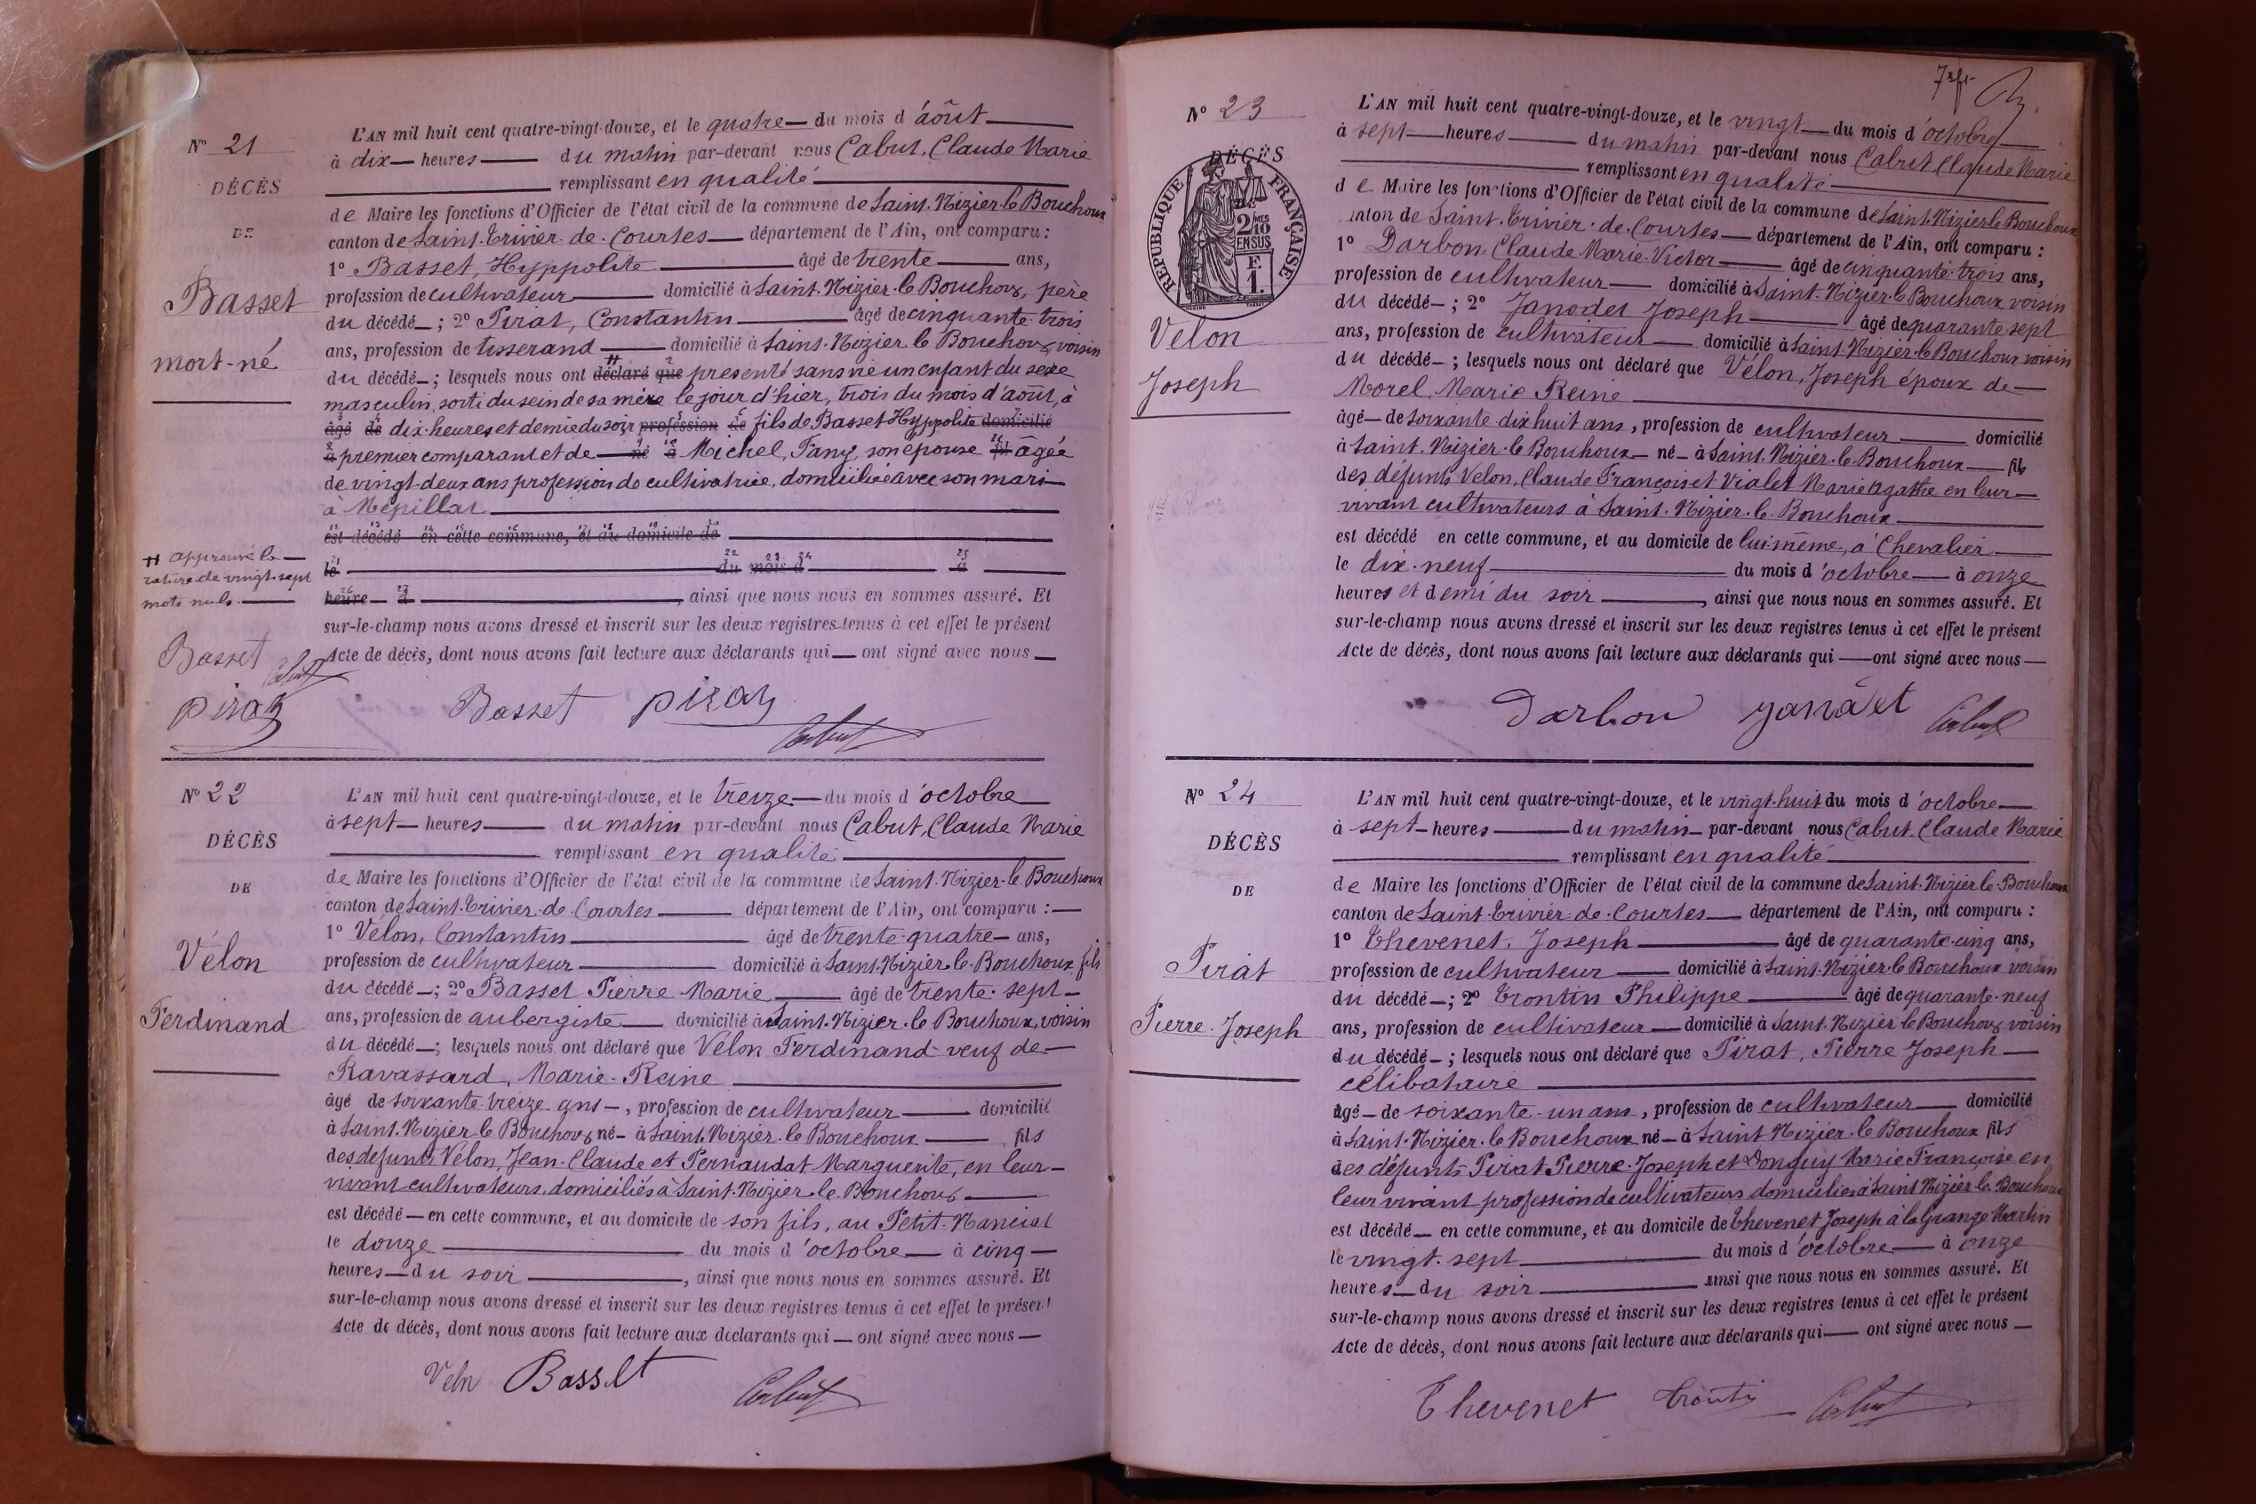 N° 21
DÉCÈS
DE
Basset
mort-né
L'AN mil huit cent quatre-vingt-douze, et le quatre du mois d'août
à dix heures du matin par-devant nous Cabut, Claude Marie
remplissant en qualité
de Maire les fonctions d'Officier de l'état civil de la commune de Saint-Nizier-le Bouchoux
canton de Saint-Trivier-de-Courtes département de l'Ain, ont comparu :
1° Basset, Hyppolite âgé de trente ans,
profession de cultivateur domicilié à Saint-Nizier-le Bouchoux, père
du décédé ; 2° Pirat, Constantin âgé de cinquante-trois
ans, profession de tisserand domicilié à Saint-Nizier le Bouchoux, voisin
du décédé ; lesquels nous ont déclaré que présenté sans vie un enfant du sexe
masculin, sorti du sein de sa mère le jour d'hier, trois du mois d'août, à
âgé de dix heures et demie du soir profession de fils de Basset Hyppolite domicilié
à premier comparant et de né à Michel, Fany, son épouse fil âgée
de vingt-deux ans profession de cultivatrice, domiciliée avec son mari
à Mépillat
est décédé en cette commune, et au domicile de
le du mois d à
heure d , ainsi que nous nous en sommes assuré. Et
sur-le-champ nous avons dressé et inscrit sur les deux registres tenus à cet effet le présent
Acte de décès, dont nous avons fait lecture aux déclarants qui ont signé avec nous
# approuvé la
rature de vingt-sept
mots nuls
Basset Cabut
Piraz
Basset piraz
Cabut
N° 22
DÉCÈS
DE
Vélon
Ferdinand
L'AN mil huit cent quatre-vingt-douze, et le treize du mois d'octobre
à sept heures du matin par-devant nous Cabut, Claude Marie
remplissant en qualité
de Maire les fonctions d'Officier de l'état civil de la commune de Saint-Nizier-le Bouchoux
canton de Saint-Trivier-de-Courtes département de l'Ain, ont comparu :
1° Vélon, Constantin âgé de trente-quatre ans,
profession de cultivateur domicilié à Saint-Nizier-le-Bouchoux fils
du décédé ; 2° Basset Pierre Marie âgé de trente-sept
ans, profession de aubergiste domicilié à Saint-Nizier-le Bouchoux, voisin
du décédé ; lesquels nous ont déclaré que Vélon Ferdinand veuf de
Ravassard, Marie-Reine
âgé de soixante-treize ans, profession de cultivateur domicilié
à Saint-Nizier le Bouchoux né à Saint-Nizier-le Bouchoux fils
des défunts Vélon, Jean-Claude et Pernaudat Marguerite, en leur
vivant cultivateurs, domiciliés à Saint-Nizier-le-Bouchoux
est décédé en cette commune, et au domicile de son fils, au Petit-Manciat
le douze du mois d'octobre à cinq
heures du soir , ainsi que nous nous en sommes assuré. Et
sur-le-champ nous avons dressé et inscrit sur les deux registres tenus à cet effet le présent
Acte de décès, dont nous avons fait lecture aux déclarants qui ont signé avec nous
Veln Basset
Cabut
N° 23
DÉCÈS
RÉPUBLIQUE FRANÇAISE
2 10MES
EN SUS
F.
1.
Velon
Joseph
L'AN mil huit cent quatre-vingt-douze, et le vingt du mois d'octobre
à sept heures du matin par-devant nous Cabut Claude Marie
remplissant en qualité
de Maire les fonctions d'Officier de l'état civil de la commune de Saint-Nizier le Bouchoux
canton de Saint-Trivier-de-Courtes département de l'Ain, ont comparu :
1° Darbon Claude-Marie-Victor âgé de cinquante-trois ans,
profession de cultivateur domicilié à Saint-Nizier-le Bouchoux voisin
du décédé ; 2° Janodet Joseph âgé de quarante-sept
ans, profession de cultivateur domicilié à Saint-Nizier-le Bouchoux voisin
du décédé ; lesquels nous ont déclaré que Vélon, Joseph époux de
Morel, Marie Reine
âgé de soixante dix huit ans, profession de cultivateur domicilié
à Saint-Nizier-le-Bouchoux né à Saint-Nizier-le-Bouchoux fils
des défunts Velon, Claude François et Vialet Marie Agathe en leur
vivant cultivateurs à Saint-Nizier-le-Bouchoux
est décédé en cette commune, et au domicile de lui-même, à Chevalier
le dix-neuf du mois d'octobre à onze
heures et demi du soir , ainsi que nous nous en sommes assuré. Et
sur-le-champ nous avons dressé et inscrit sur les deux registres tenus à cet effet le présent
Acte de décès, dont nous avons fait lecture aux déclarants qui ont signé avec nous
Darbon Janodet Cabut
N° 24
DÉCÈS
DE
Pirat
Pierre-Joseph
L'AN mil huit cent quatre-vingt-douze, et le vingt-huit du mois d'octobre
à sept heures du matin par-devant nous Cabut Claude Marie
remplissant en qualité
de Maire les fonctions d'Officier de l'état civil de la commune de Saint-Nizier le Bouchoux
canton de Saint-Trivier-de-Courtes département de l'Ain, ont comparu :
1° Thevenet, Joseph âgé de quarante-cinq ans,
profession de cultivateur domicilié à Saint-Nizier-le Bouchoux voisin
du décédé ; 2° Trontin Philippe âgé de quarante-neuf
ans, profession de cultivateur domicilié à Saint-Nizier le Bouchoux voisin
du décédé ; lesquels nous ont déclaré que Pirat, Pierre Joseph
célibataire
âgé de soixante-un ans, profession de cultivateur domicilié
à Saint-Nizier-le Bouchoux né à Saint Nizier-le Bouchoux fils
des défunts Pirat Pierre-Joseph et Donguy Marie Françoise en
leur vivant profession de cultivateurs domiciliés à Saint Nizier le Bouchoux
est décédé en cette commune, et au domicile de Thevenet Joseph à la Grange Martin
le vingt-sept du mois d'octobre à onze
heures du soir ainsi que nous nous en sommes assuré. Et
sur-le-champ nous avons dressé et inscrit sur les deux registres tenus à cet effet le présent
Acte de décès, dont nous avons fait lecture aux déclarants qui ont signé avec nous
Thevenet Trontin Cabut